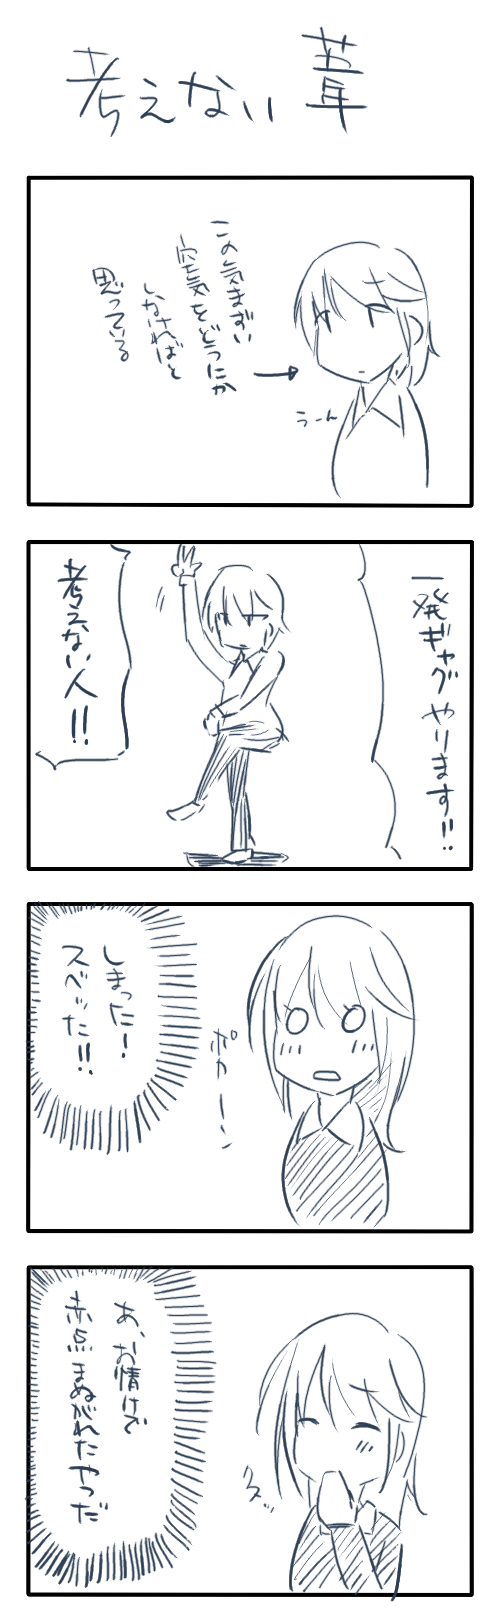 考えない葦
この気まずい
空気をどうにか
しなければと
思っている
うーん
一発ギャグやります!!
考えない人!!
しまった!
スベッた!!
ポカーン
あ、お情けで
赤点まぬがれたやつだ
クス…